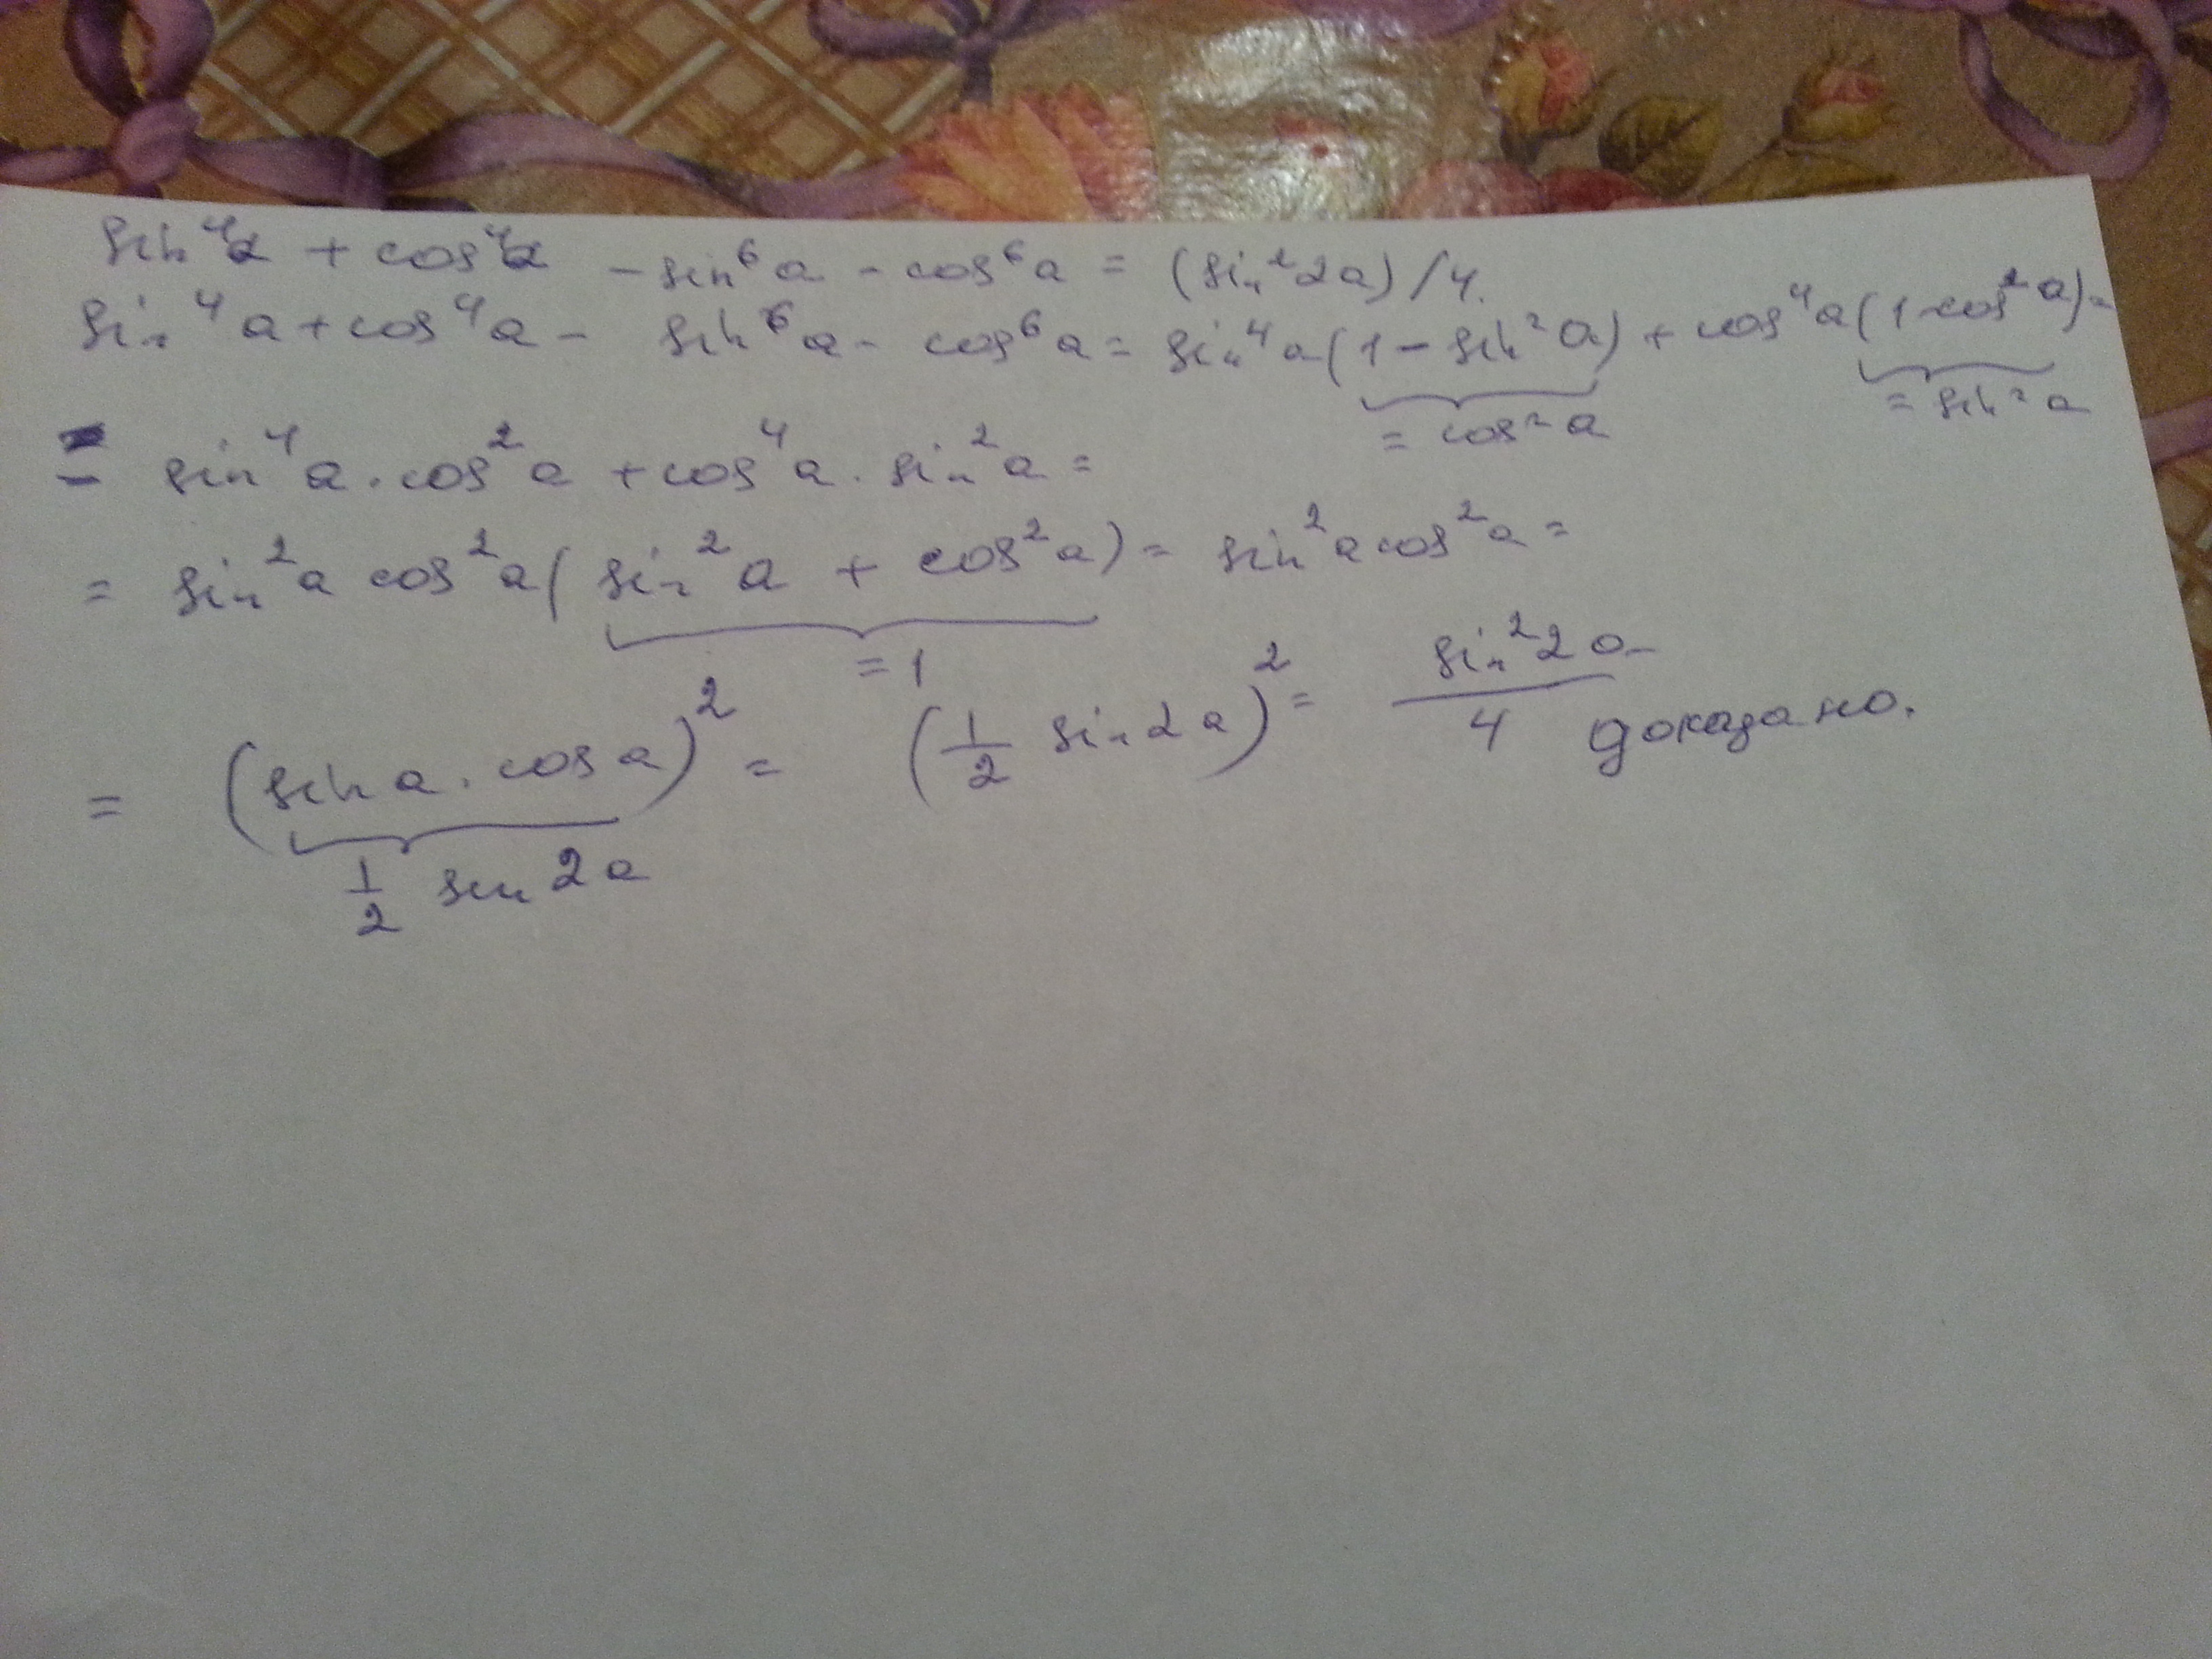 sin⁴a + cos⁴a - sin⁶a - cos⁶a = (sin²2a)/4.
sin⁴a + cos⁴a - sin⁶a - cos⁶a = sin⁴a(1 - sin²a) + cos⁴a(1 - cos²a) =
= cos²a = sin²a
= sin⁴a · cos²a + cos⁴a · sin²a =
= sin²a cos²a (sin²a + cos²a) = sin²a cos²a =
= 1
= (sin a · cos a)² = (1/2 sin 2a)² = sin²2a/4 доказано.
1/2 sin 2a